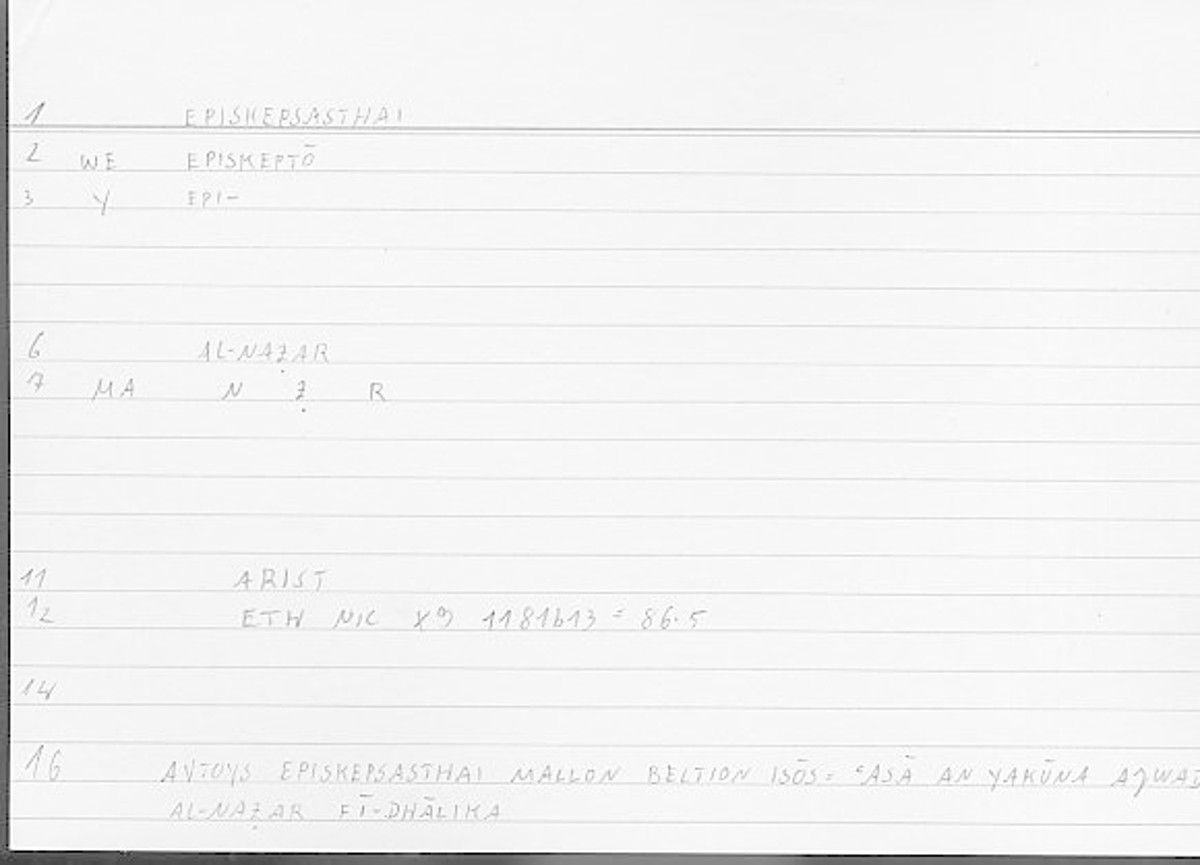 1 EPISKEPSASTHAI
2 WE EPISKEPTŌ
3 Y EPI-
6 AL-NAẒAR
7 MA N Ẓ R
11 ARIST
12 ETH NIC X9 1181b13 = 86.5
14
16 AYTOYS EPISKEPSASTHAI MALLON BELTION ISŌS = ʿASĀ AN YAKŪNA
AL-NAẒAR FĪ-DHĀLIKA